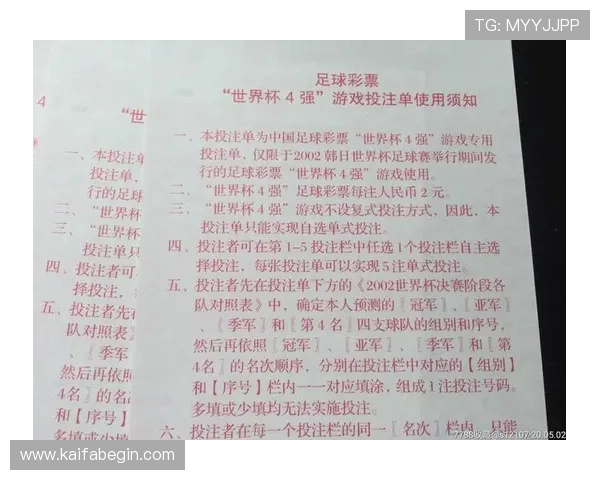 TG: MYYJJPP
足球彩票
“世界杯 4 强”游戏投注单使用须知
一、本投注单为中国足球彩票“世界杯 4 强”游戏专用
投注单，仅限于2002 韩日世界杯足球赛举行期间发
行的足球彩票“世界杯 4 强”游戏使用。
二、“世界杯 4 强”足球彩票每注人民币 2 元。
三、“世界杯 4 强”游戏不设复式投注方式，因此，本
投注单只能实现自选单式投注。
四、投注者可在第 1-5 投注栏中任选 1个投注栏自主选
择投注，每张投注单可以实现 5 注单式投注。
五、投注者先在投注单下方的《2002世界杯决赛阶段各
队对照表》中，确定本人预测的〖冠军〗、〖亚军〗
、〖季军〗和〖第 4 名〗四支球队的组别和序号，
然后再依照〖冠军〗、〖亚军〗、〖季军〗和〖第
4名〗的名次顺序，分别在投注栏中对应的【组别】
和【序号】栏内一一对应填涂，组成 1注投注号码。
多填或少填均无法实施投注。
六、投注者在每一个投注栏的同一〖名次〗栏内，只能
4
“世
一、本投注单
投注单，
行的足球
二、“世界杯
三、“世界杯
投注单只
四、投注者可
择投注，
五、投注者先在
队对照表》
、〖季军〗
然后再依照
4名〗的名
和【序号】
多填或少填
六、投注者在
www.kaifabegin.com